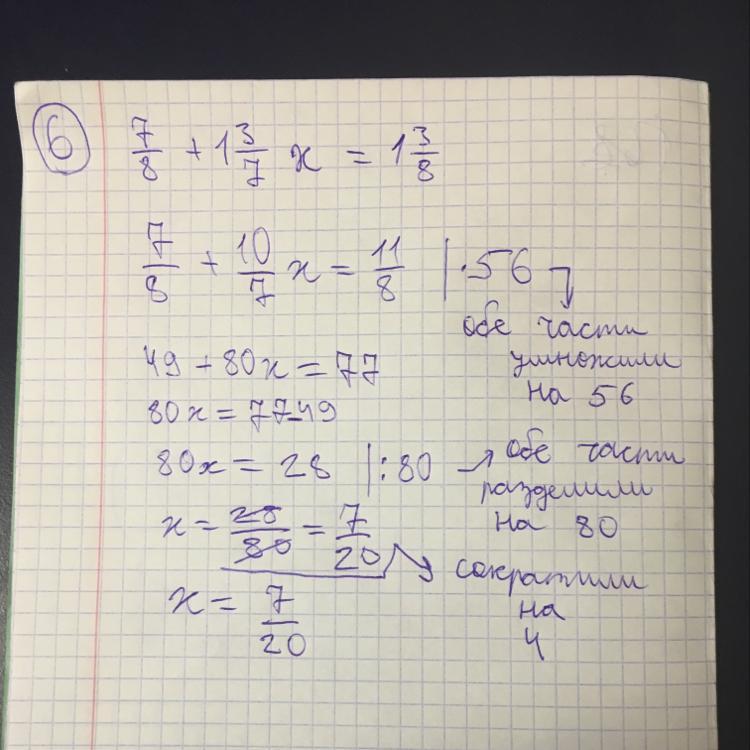 6
7/8 + 1 3/7 x = 1 3/8
7/8 + 10/7 x = 11/8 | ·56
обе части
умножили
на 56
49 + 80x = 77
80x = 77-49
80x = 28 |:80 → обе части
разделили
на 80
x = 28/80 = 7/20
сократили
на
4
x = 7/20